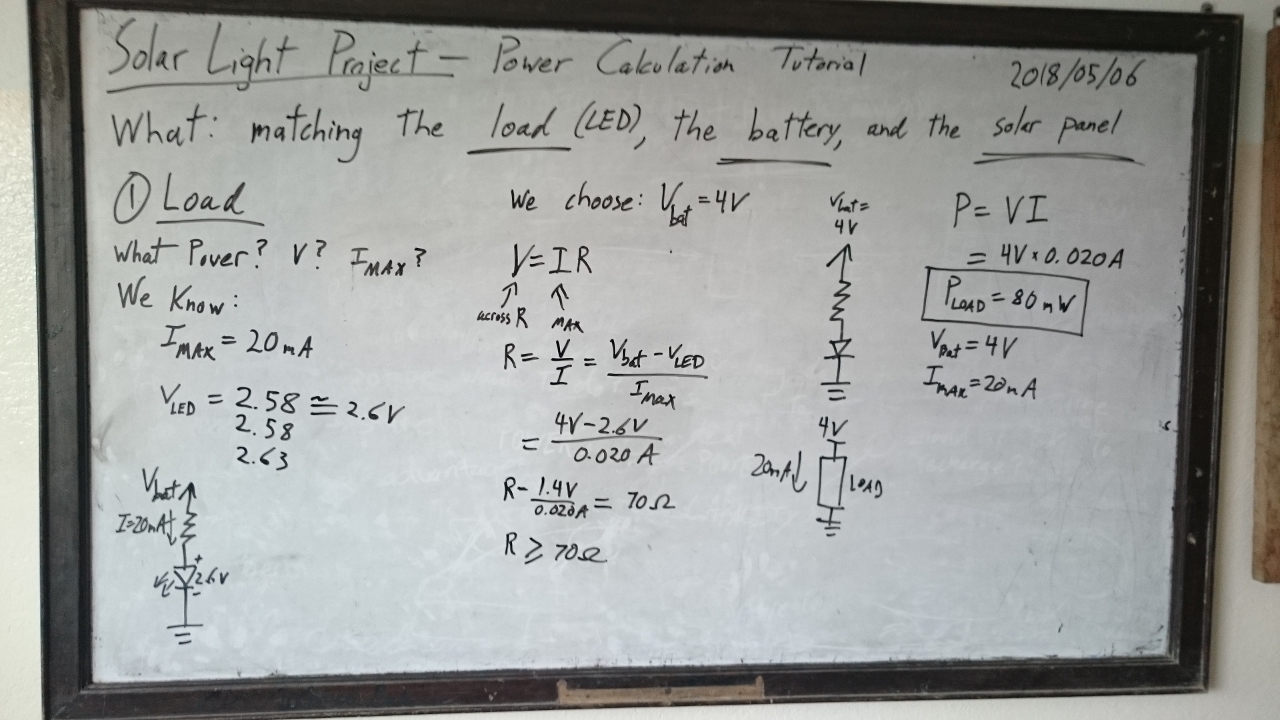 Solar Light Project – Power Calculation Tutorial 2018/05/06
What: matching the load (LED), the battery, and the solar panel
① Load
What Power? V? I_MAX?
We Know:
I_MAX = 20mA
V_LED = 2.58 ≅ 2.6V
2.58
2.63
V_bat
I=20mA
+
2.6V
-
We choose: V_bat = 4V
V = I R
across R MAX
R = V/I = (V_bat - V_LED)/I_max
= (4V - 2.6V)/0.020 A
R - 1.4V/0.020A = 70Ω
R ≥ 70Ω
V_bat =
4V
4V
20mA
LOAD
P = VI
= 4V × 0.020A
P_LOAD = 80mW
V_bat = 4V
I_MAX = 20mA